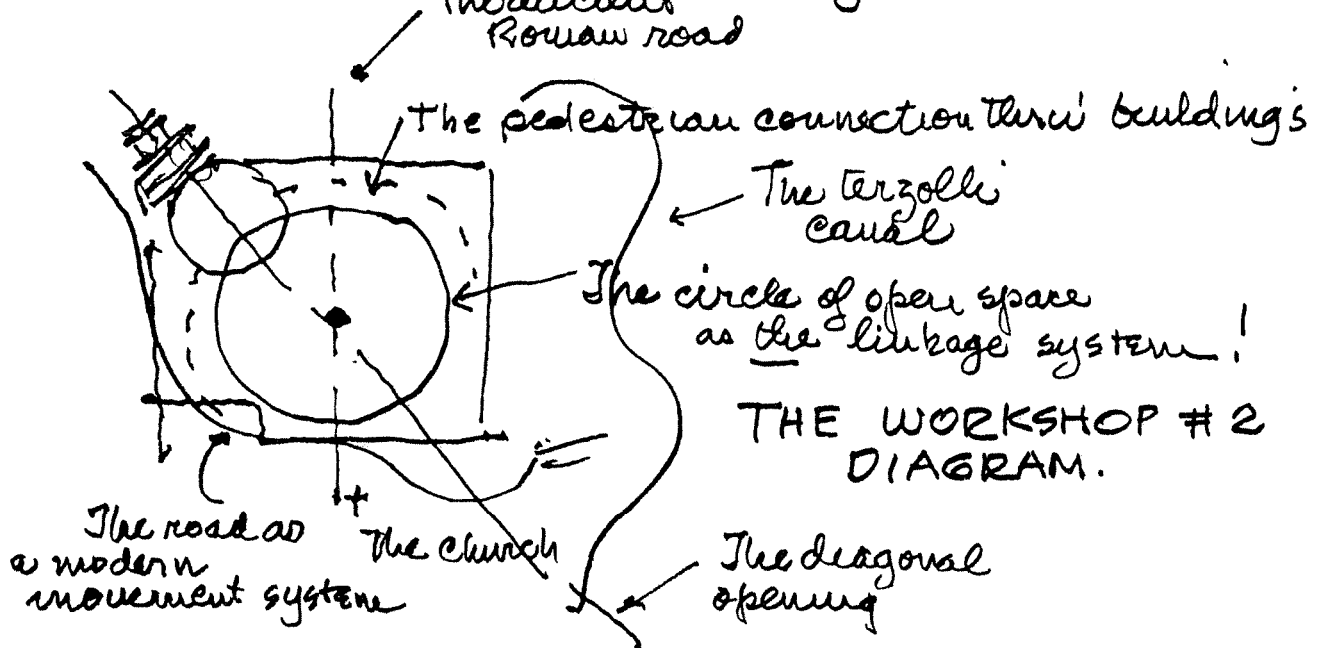 Roman road
The pedestrian connection thru' buildings
The terzolli
canal
The circle of open space
as the linkage system!
THE WORKSHOP # 2
DIAGRAM.
The road as
a modern
movement system
The church
The diagonal
opening